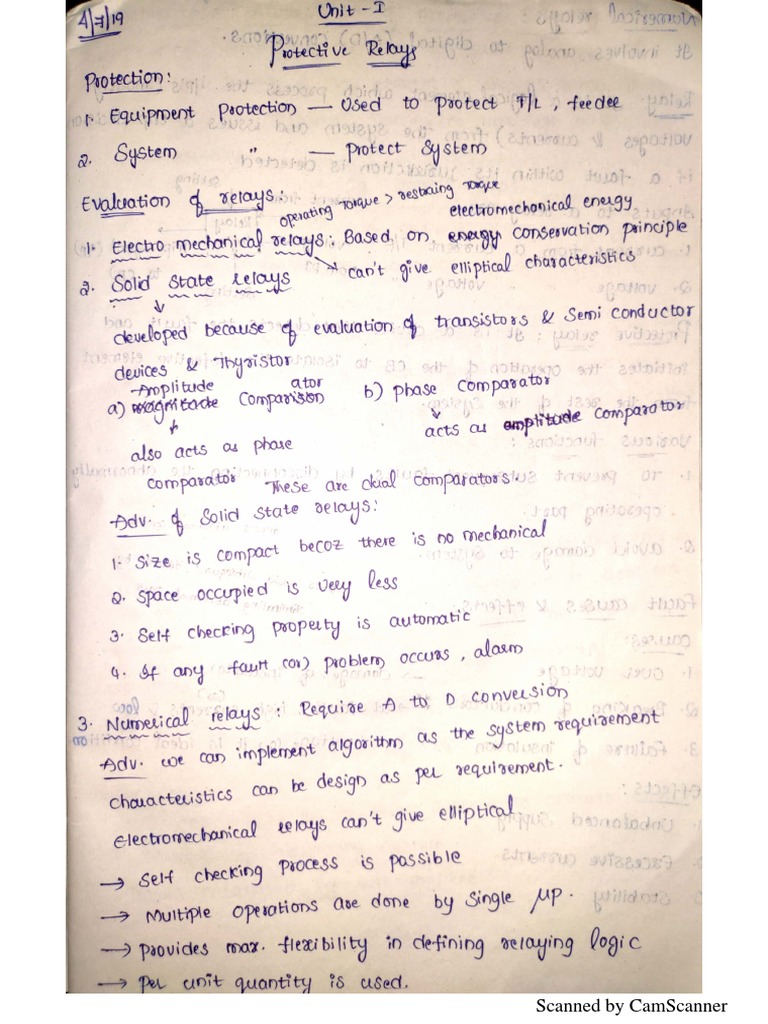 4/7/19
Unit - I
Protective Relays
Protection:
1. Equipment Protection — Used to Protect T/L, feedee
2. System " — Protect System
Evaluation of relays:
operating Torque > restraing Torque
electromechanical energy
1. Electro mechanical relays: Based on energy conservation principle
→ can't give elliptical characteristics
2. Solid State relays
↓
developed because of evaluation of transistors & Semi conductor
devices & Thyristor
Amplitude ator
a) magnitude Comparison b) phase comparator
↓ ↓
also acts as phase acts as amplitude comparator
comparator These are dual comparators.
Adv. of Solid State relays:
1. Size is compact becoz there is no mechanical
2. Space occupied is very less
3. Self checking property is automatic
4. If any fault (or) problem occurs, alarm
3. Numerical relays: Require A to D conversion
Adv. we can implement algorithm as the system requirement
characteristics can be design as per requirement.
Electromechanical relays can't give elliptical
→ Self checking process is possible
→ Multiple operations are done by single μP.
→ provides max. flexibility in defining relaying logic
→ Per unit quantity is used.
Scanned by CamScanner